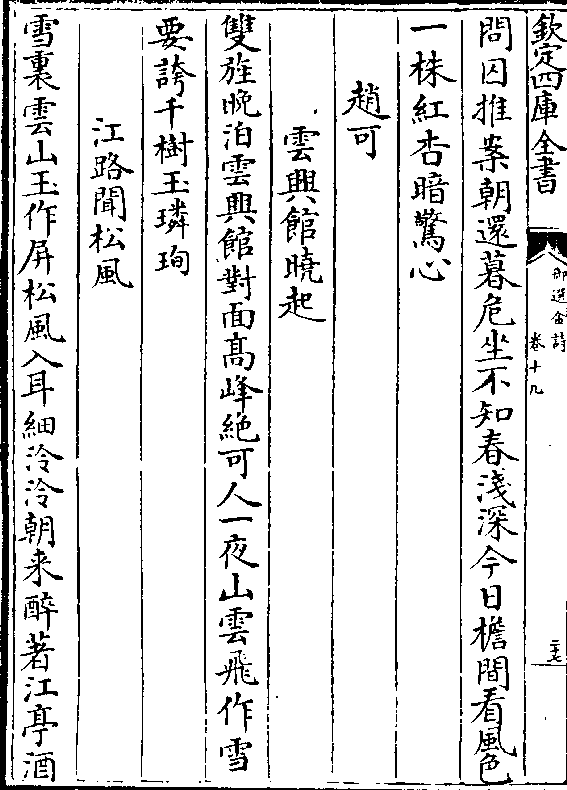 欽定四庫全書
御選金詩
卷十九
二十七
問囚推案朝還暮危坐不知春淺深今日檐間看風色
一株紅杏暗驚心
趙可
雲興館曉起
雙旌晚泊雲興館對面髙峰絶可人一夜山雲飛作雪
要誇千樹玉璘珣
江路聞松風
雪裏雲山玉作屏松風入耳細泠泠朝来醉著江亭酒